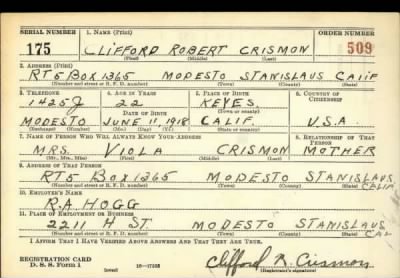 SERIAL NUMBER 1. NAME (Print) ORDER NUMBER
175 CLIFFORD ROBERT CRISMON 509
(First) (Middle) (Last)
2. ADDRESS (Print)
RT 5 BOX 1365 MODESTO STANISLAUS CALIF
(Number and street or R. F. D. number) (Town) (County) (State)
3. TELEPHONE 4. AGE IN YEARS 5. PLACE OF BIRTH 6. COUNTRY OF CITIZENSHIP
1425J 22 KEYES
DATE OF BIRTH (Town or county)
MODESTO JUNE 11, 1918 CALIF. U.S.A
(Exchange) (Number) (Mo.) (Day) (Yr.) (State or country)
7. NAME OF PERSON WHO WILL ALWAYS KNOW YOUR ADDRESS 8. RELATIONSHIP OF THAT PERSON
MRS. VIOLA CRISMON MOTHER
(Mr., Mrs., Miss) (First) (Middle) (Last)
9. ADDRESS OF THAT PERSON
RT5 BOX 1365 MODESTO STANISLAUS CALIF
(Number and street or R. F. D. number) (Town) (County) (State)
10. EMPLOYER'S NAME
R.A. HOGG
11. PLACE OF EMPLOYMENT OR BUSINESS
2211 H ST. MODESTO STANISLAUS CAL
(Number and street or R. F. D. number) (Town) (County) (State)
I AFFIRM THAT I HAVE VERIFIED ABOVE ANSWERS AND THAT THEY ARE TRUE.
REGISTRATION CARD
D. S. S. Form 1 (over) 16—17105 Clifford R. Crismon
(Registrant's signature)